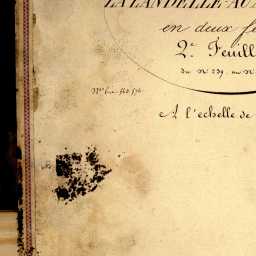 LA LANDELLE-AU
en deux fe
2.e Feuill
du N.o 239. au N.o
A l'echelle de